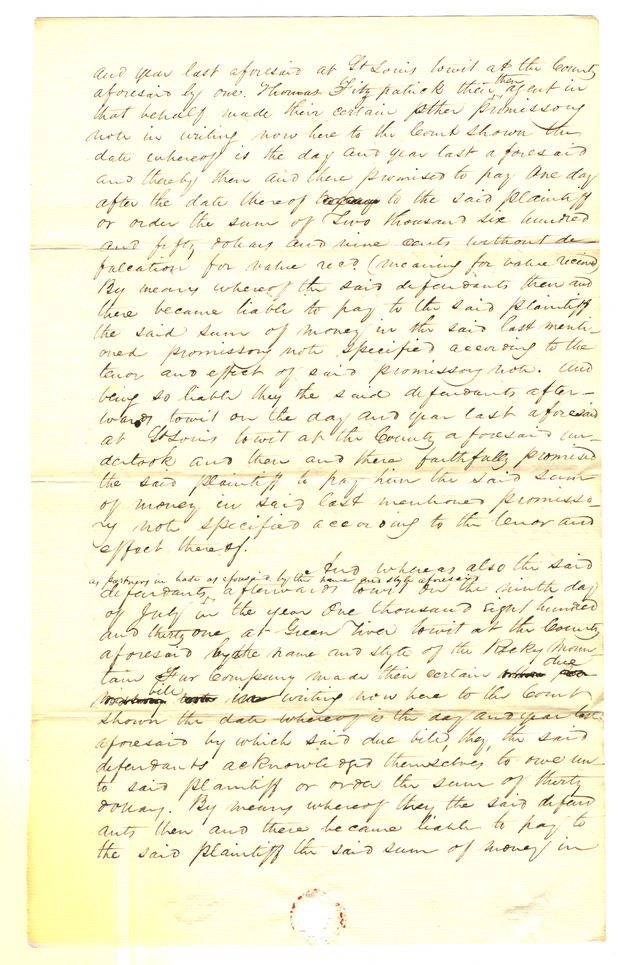 and year last aforesaid at St Louis towit at the County
aforesaid by one Thomas Fitzpatrick their then agent in
that behalf made their certain other promissory
note in writing now here to the Court shown the
date whereof is the day and year last aforesaid
and thereby then and there promised to pay One day
after the date thereof to the said plaintiff
or order the sum of Two thousand six hundred
and fifty dollars and nine cents without de-
falcation for value recd (meaning for value received)
By means whereof the said defendants then and
there became liable to pay to the said plaintiff
the said sum of money in the said last menti-
oned promissory note specified according to the
tenor and effect of said promissory note. And
being so liable they the said defendants after-
wards towit on the day and year last aforesaid
at St Louis towit at the County aforesaid un-
dertook and then and there faithfully promised
the said plaintiff to pay him the said sum
of money in said last mentioned promisso-
ry note specified according to the tenor and
effect thereof.
And whereas also the said
as partners in trade as aforesaid by the name and style aforesaid
defendants afterwards towit on the ninth day
of July in the year One thousand Eight hundred
and thirty one at Green River towit at the County
aforesaid by the name and style of the Rocky Moun-
tain Fur Company made their certain due
bill in writing now here to the Court
shown the date whereof is the day and year last
aforesaid by which said due bill, they, the said
defendants acknowledged themselves to owe un-
to said plaintiff or order the sum of thirty
dollars. By means whereof they the said defend
ants then and there became liable to pay to
the said plaintiff the said sum of money in